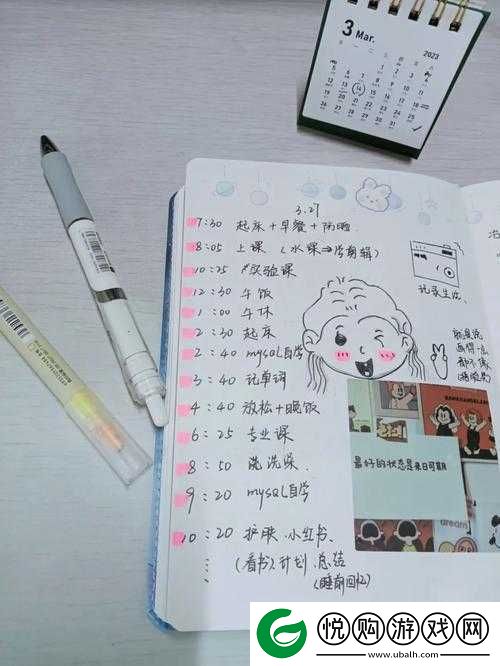 3 Mar.
2023
3.27
7:30 起床+早餐+防晒
8:05 上课 (水课⇒学剪辑)
10:25 实验课
12:30 午饭
1:00 午休
2:30 起床
2:40 mysql自学
3:40 记单词
4:40 放松+晚饭
6:25 专业课
8:50 洗洗澡.
9:20 mysql自学
10:20 护肤.小红书.
(看书).计划.总结
(睡前回忆)
记录生活.
就是说
画得一点
都不像
最好的状态是来日可期
dream
悦购游戏网
www.ubalh.com